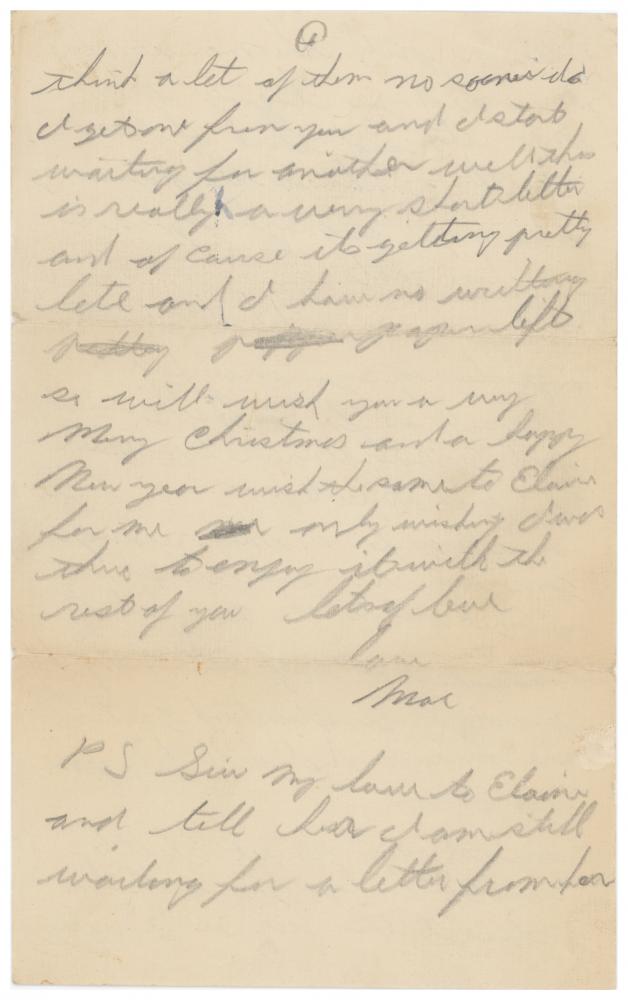 4
think a lot of them no sooner do
I get one from you and I start
waiting for another well this
is really a very short letter
and of cause its getting pretty
late and I have no writting
paper left
so will wish you a very
Merry Christmas and a happy
New year wish the same to Elaine
for me only wishing I was
there to enjoy it with the
rest of you lots of love
love
Moe
PS Give my love to Elaine
and tell her I am still
waiting for a letter from her